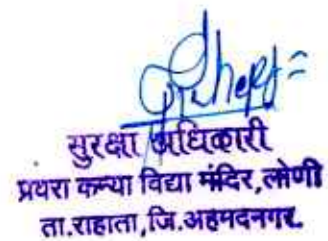 सुरक्षा अधिकारी
प्रवरा कन्या विद्या मंदिर, लोणी
ता.राहाता, जि.अहमदनगर.